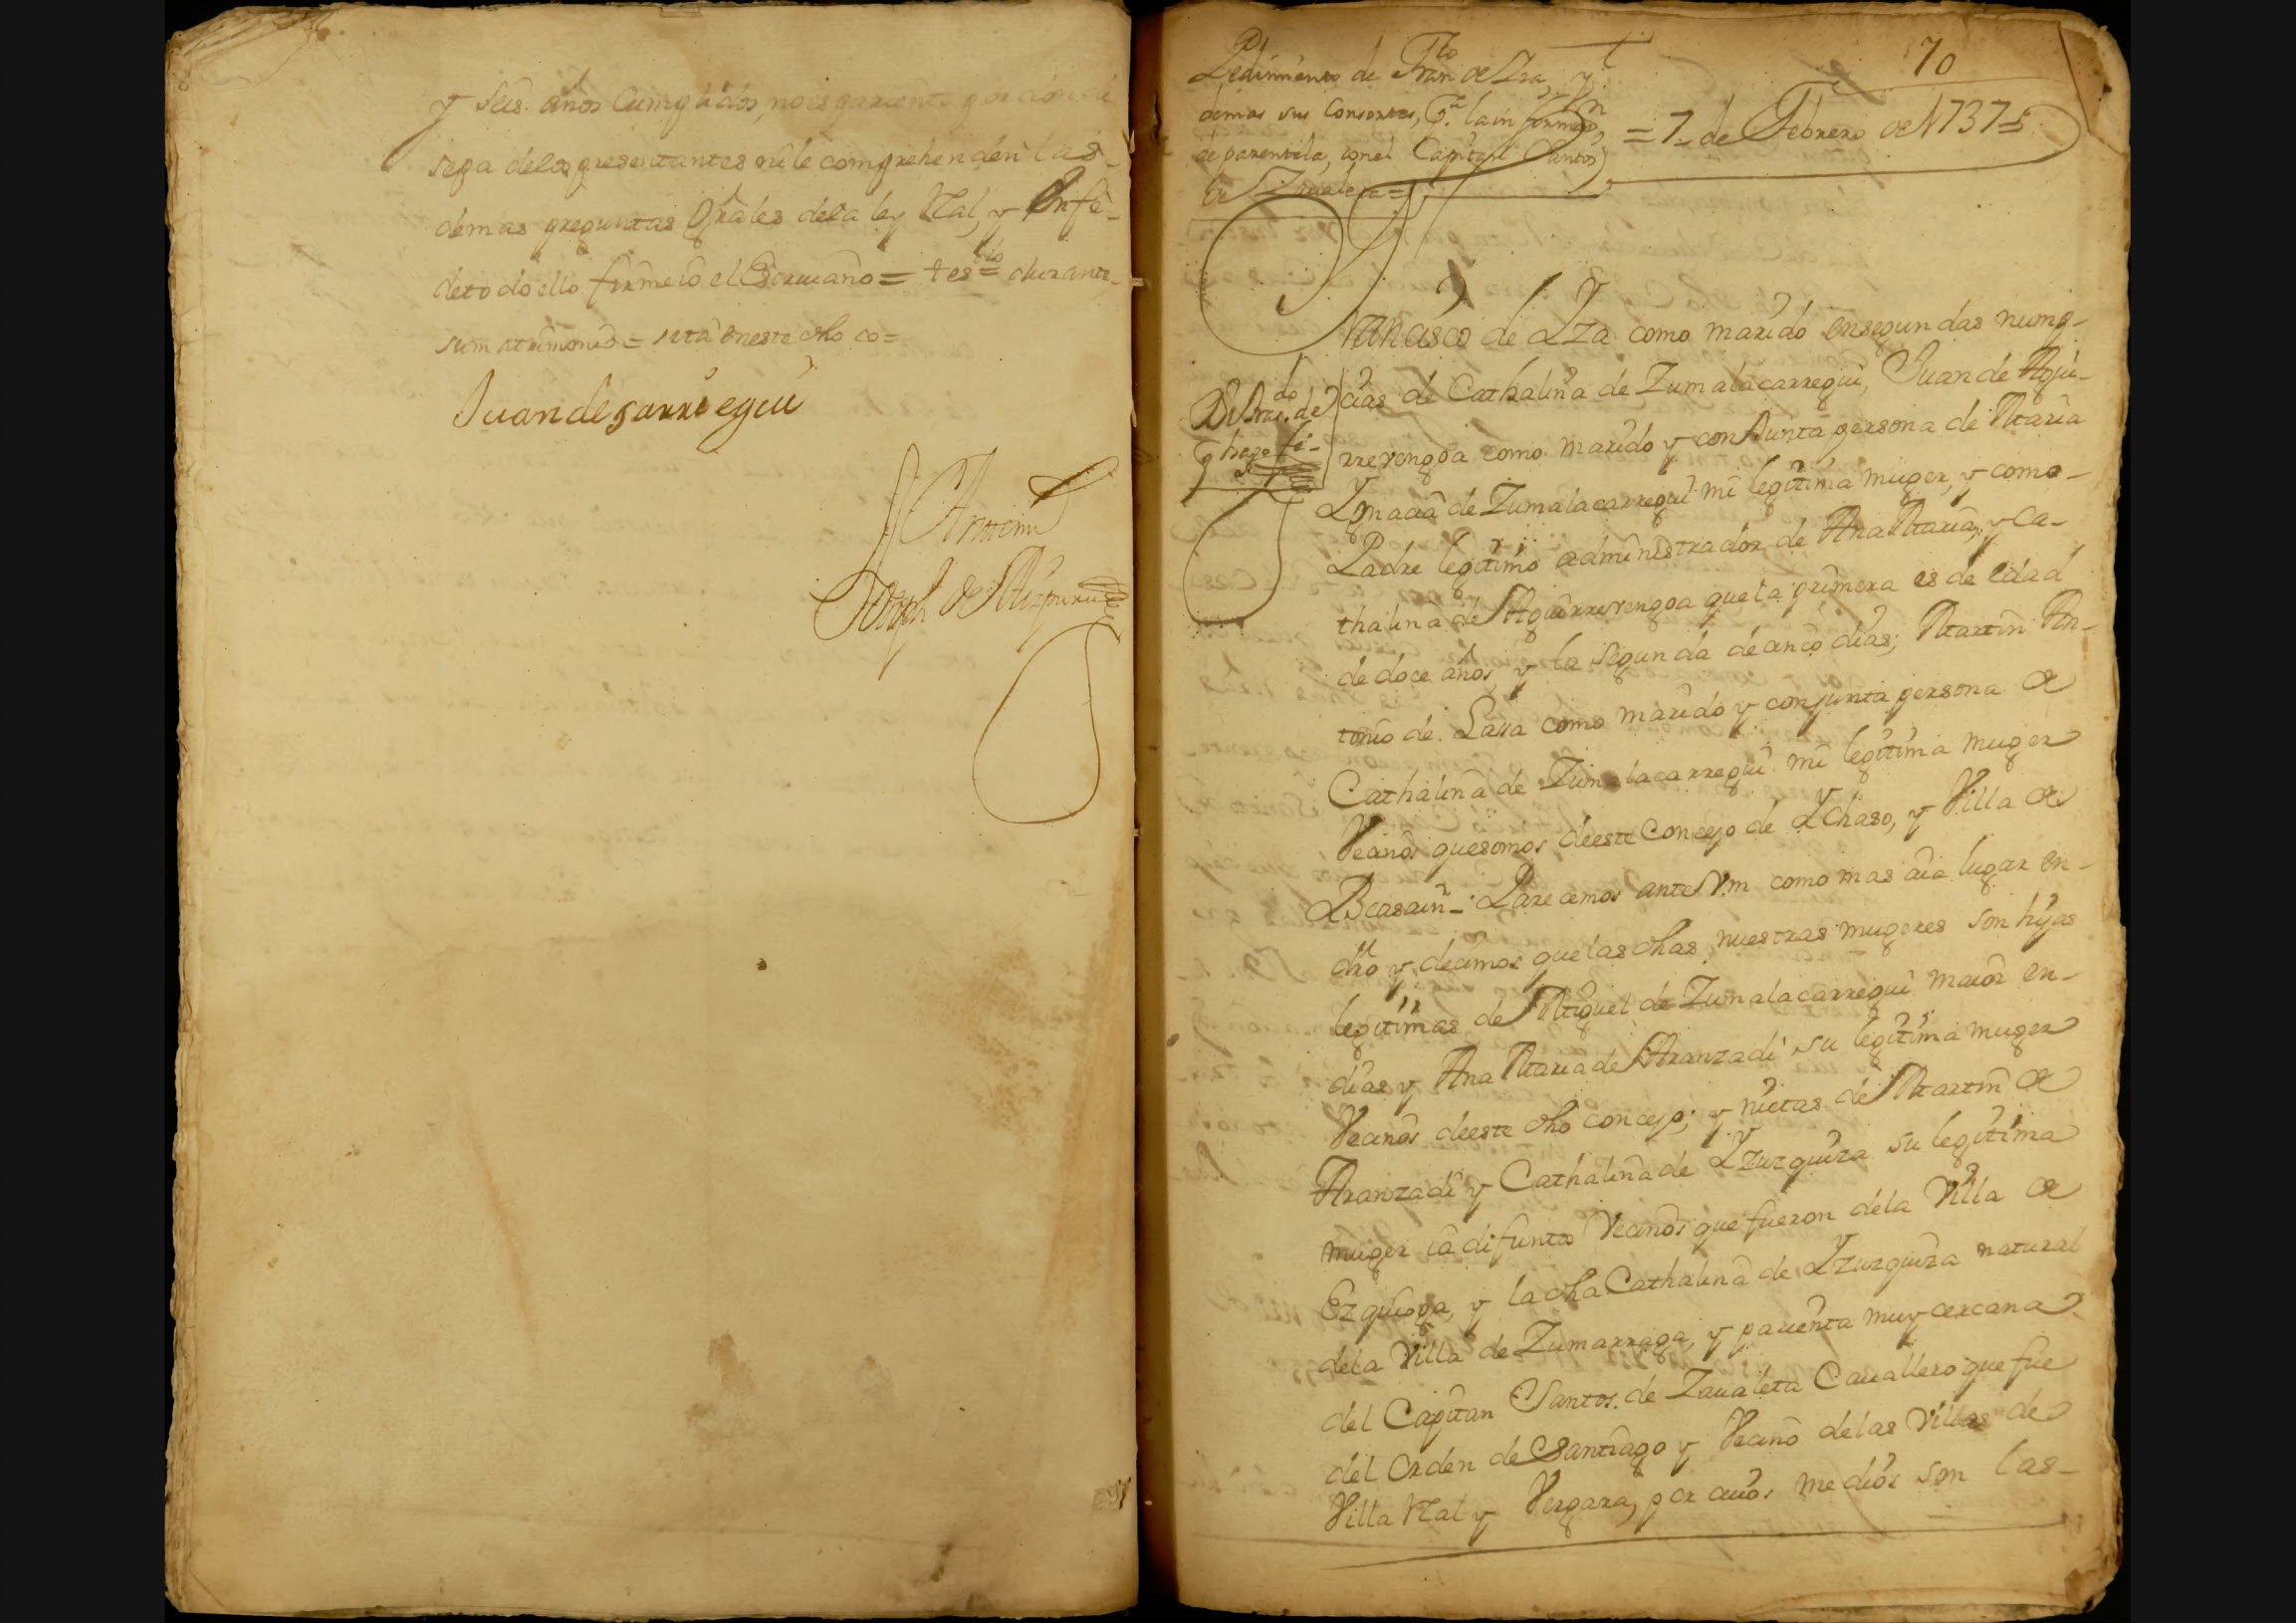 y seis años Cumplidos, no es pariente
sepa delos presentantes ni le comprehenden las-
demas preguntas Grâles dela ley Râl, y En fe-
de todo ello firme io el Escriuano = tes.do durante
su matrimonio = setâ en este dho co=
Juan de sarriegui
Ante mi
Joseph de Aizpuru
70
Pedimiento de Fran.co de Yza, y
demas sus Consortes, P.a la informaz.n
de parentela, con el Capitan Santos
de Zaualeta =
= 7 de Febrero de 1737 =
Francisco de Yza como marido en segundas nump-
cias de Cathalina de Zumalacarregui, Juan de Agui-
rrerengoa como marido y conJunta persona de Maria
Ygnacia de Zumalacarregui mi legitima muger, y como-
Padre legitimo administrador de Ana Maria, y Ca-
thalina de Aguirrerengoa que la primera es de edad
de doce años, y la segunda de cinco dias; Martin An-
tonio de Lassa como marido y conjunta persona de
Cathalina de Zumalacarregui mi legitima muger
Vecinos que somos de este Concejo de Ychaso, y Villa de
Beasain = Parecemos ante Vm como mas aia lugar en-
dro y decimos que las dhas nuestras mugeres son hijas
legitimas de Miguel de Zumalacarregui maior en-
dias y Ana Maria de Aranzadi su legitima muger
Vecinos de este dho concejo; y nietas de Martin de
Aranzadi y Cathalina de Yzurquiza su legitima
muger ia difuntos Vecinos que fueron dela Villa de
Ezquioga, y la dha Cathalina de Yzurquiza natural
dela Villa de Zumarraga, y parienta muy cercana
del Capitan Santos de Zaualeta Cauallero que fue
del Orden de Santiago y Vecino delas Villas de
Villa Râl y Vergara, por cuios medios son las-